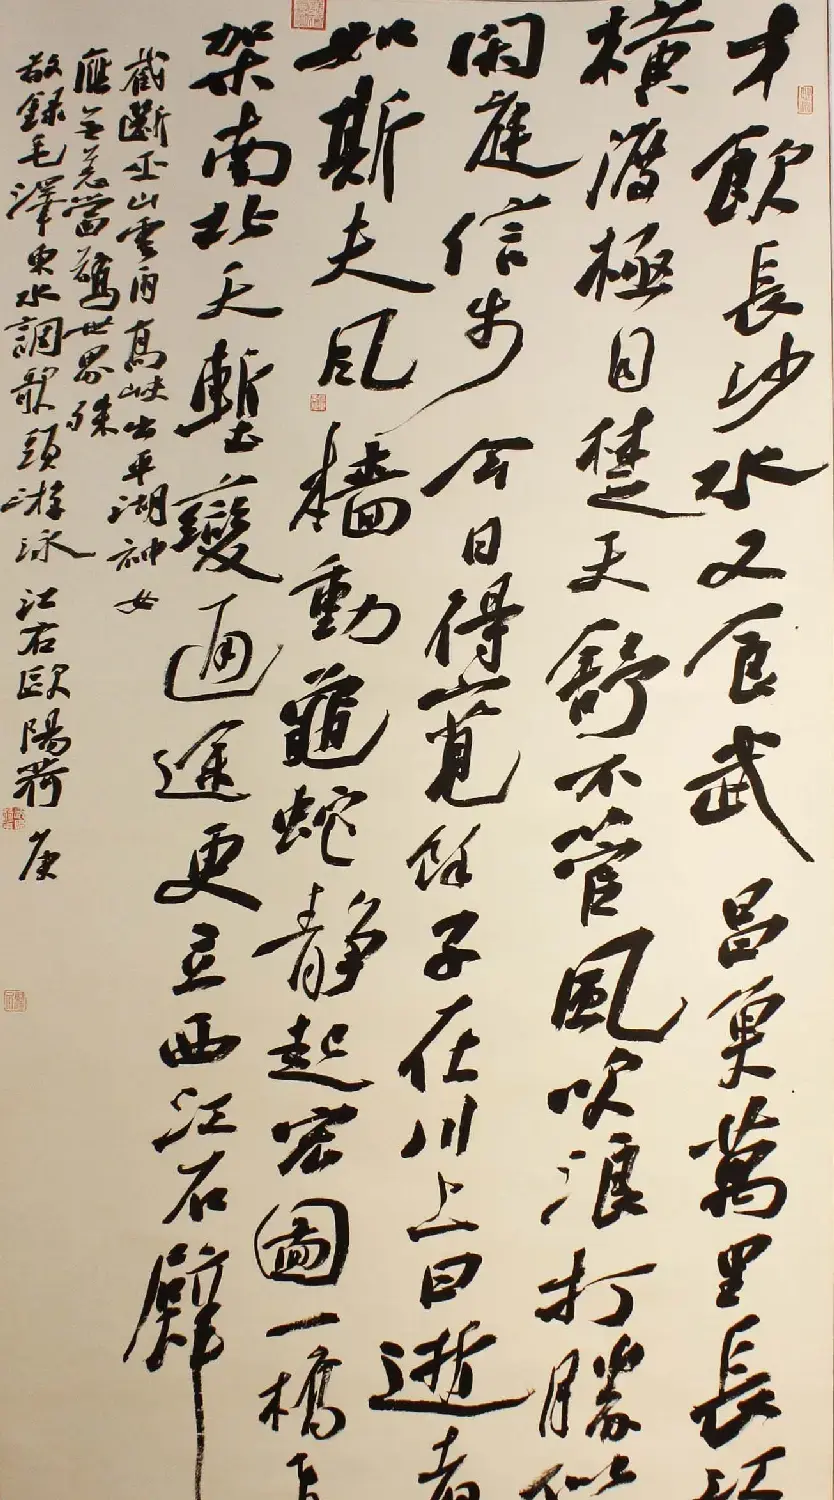 才飲長沙水又食武昌魚萬里長江
橫渡極目楚天舒不管風吹浪打勝似
閑庭信步今日得寬餘子在川上曰逝者
如斯夫风檣動龜蛇静起宏圖一橋飛
架南北天塹變通途更立西江石壁
截斷巫山雲雨高峽出平湖神女
應无恙當驚世界殊
敬錄毛澤東水調歌頭游泳 江右歐陽荷庚